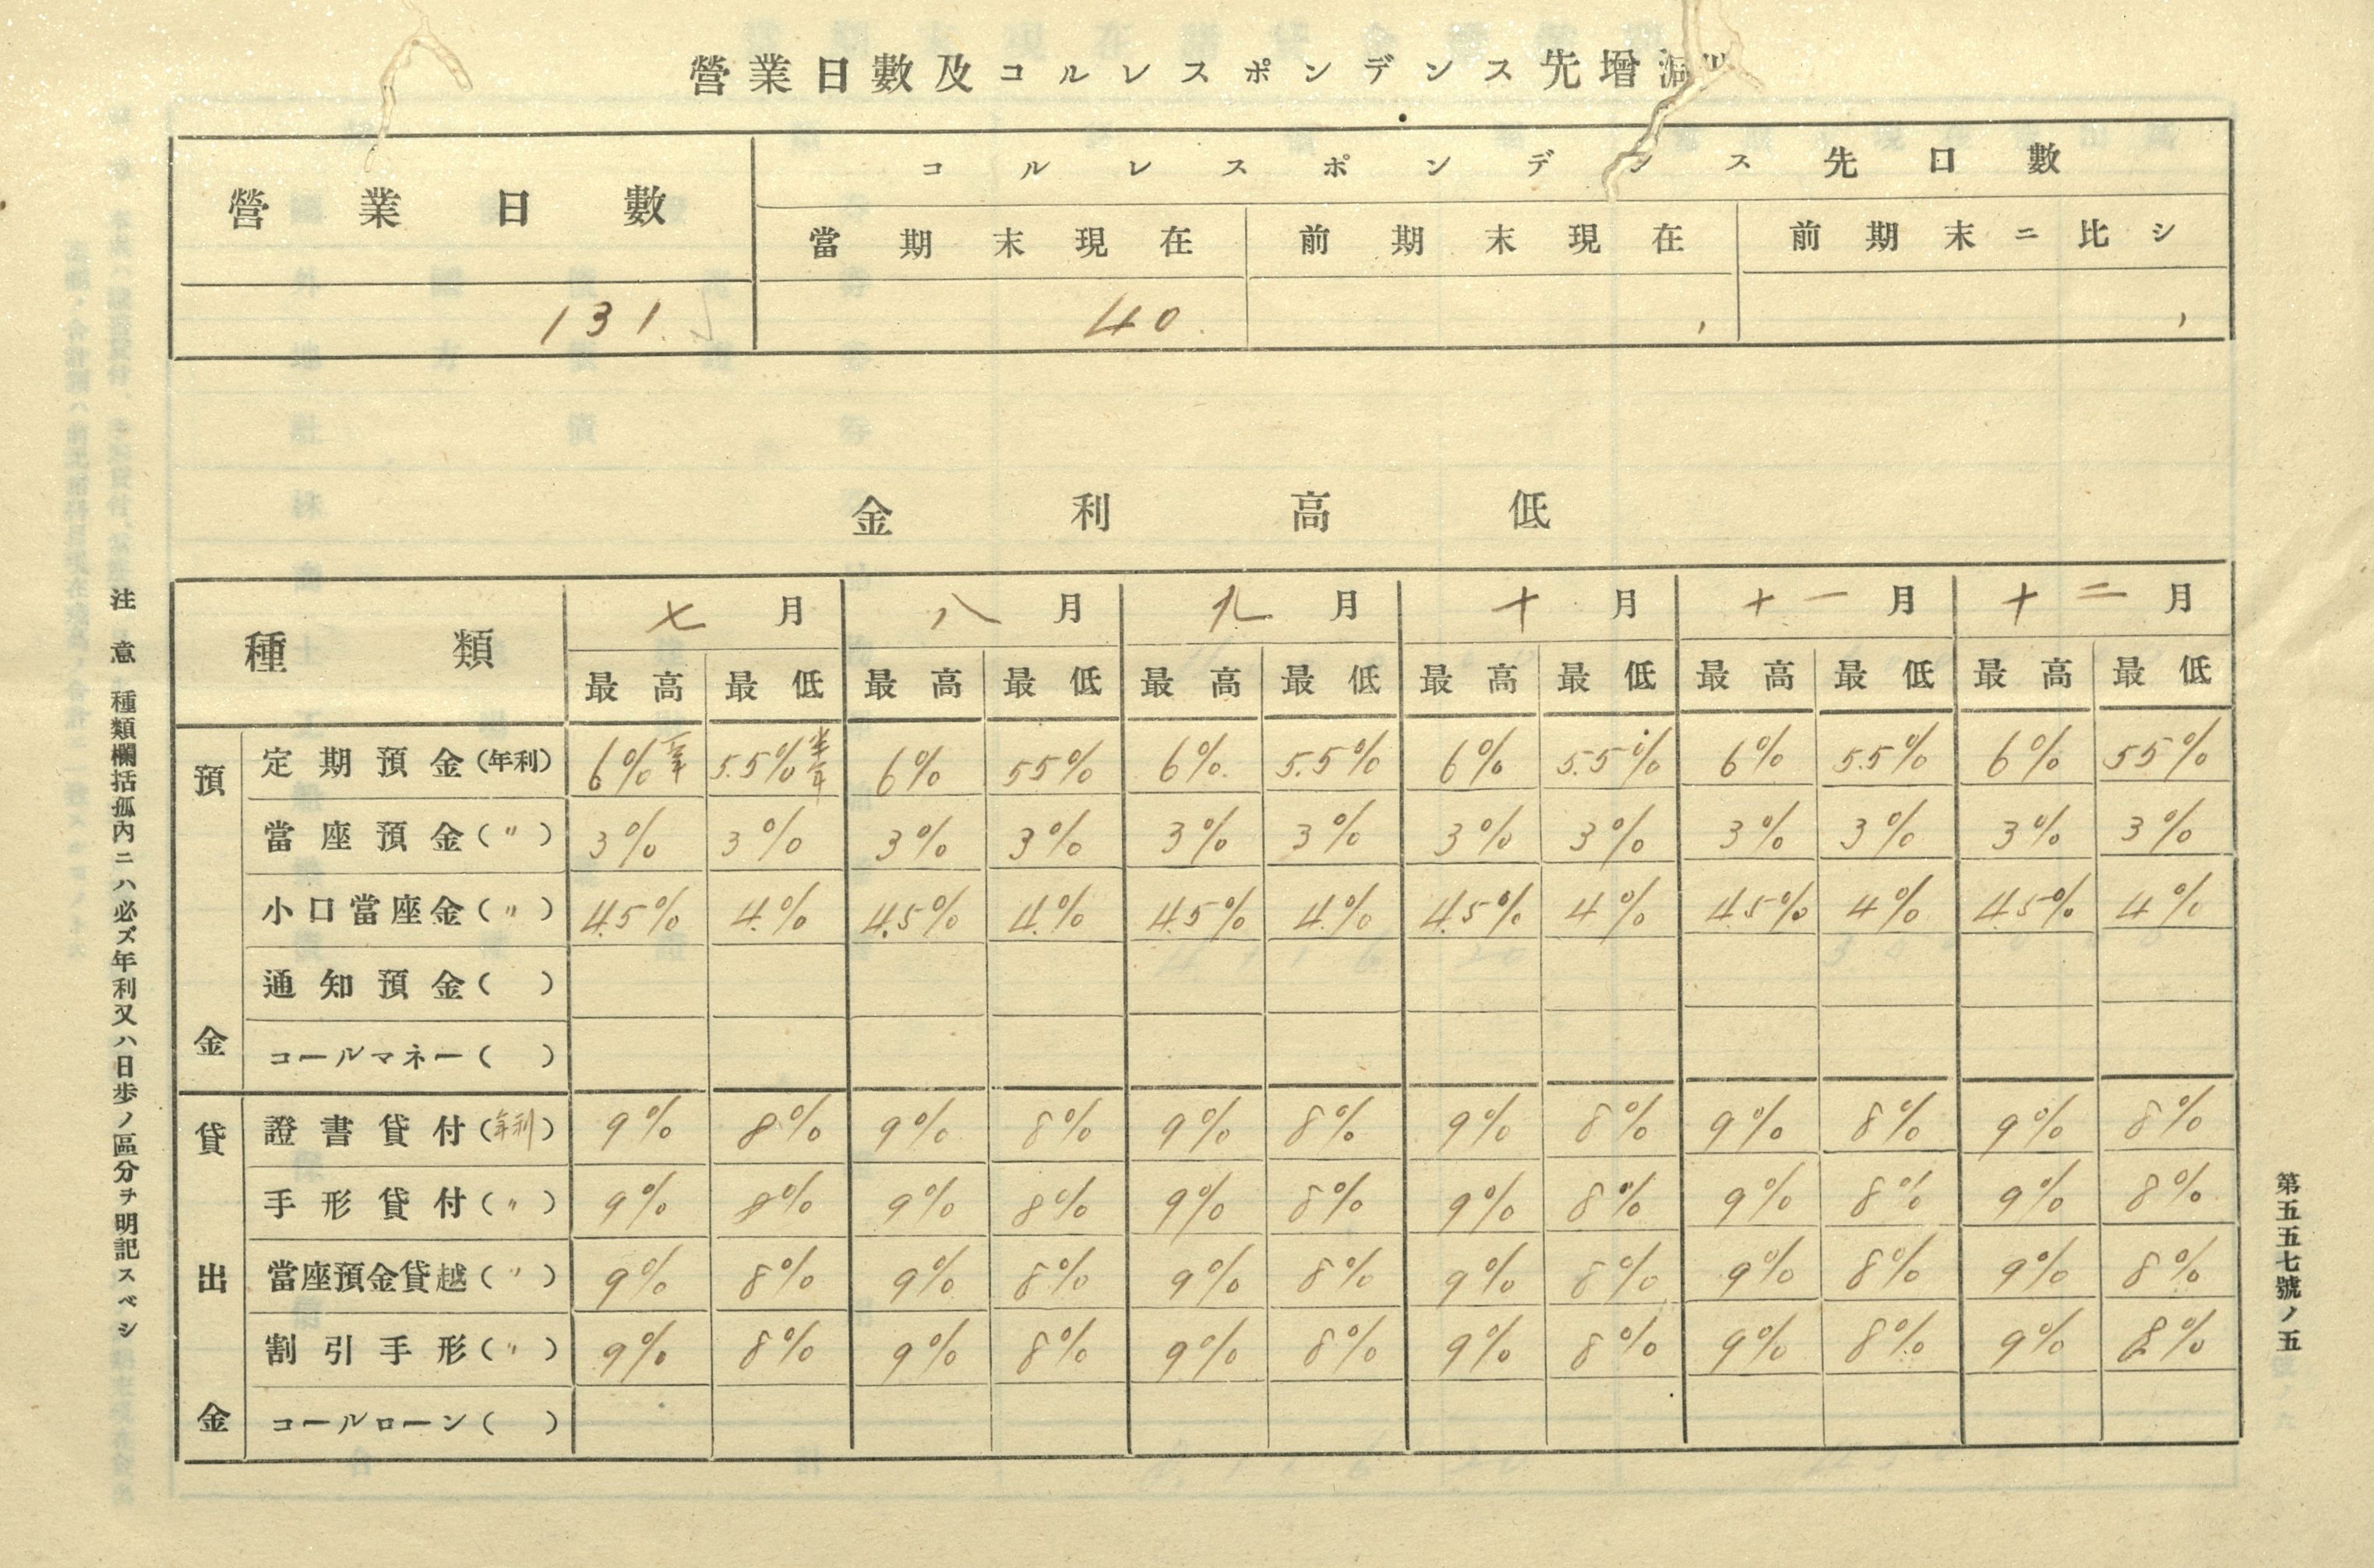 營業日數及コルレスポンデンス先增減
營業日數 コルレスポンデンス先口數
當期末現在 前期末現在 前期末ニ比シ
131. 40.
金利高低
種類 七月 八月 九月 十月 十一月 十二月
最高 最低 最高 最低 最高 最低 最高 最低 最高 最低 最高 最低
預金
定期預金(年利) 6% 一年 5.5% 半年 6% 55% 6% 5.5% 6% 5.5% 6% 5.5% 6% 55%
當座預金(〃) 3% 3% 3% 3% 3% 3% 3% 3% 3% 3% 3% 3%
小口當座金(〃) 4.5% 4.% 4.5% 4.% 4.5% 4.% 4.5% 4% 4.5% 4% 4.5% 4%
通知預金( )
コールマネー( )
貸出金
證書貸付(年利) 9% 8% 9% 8% 9% 8% 9% 8% 9% 8% 9% 8%
手形貸付(〃) 9% 8% 9% 8% 9% 8% 9% 8% 9% 8% 9% 8%
當座預金貸越(〃) 9% 8% 9% 8% 9% 8% 9% 8% 9% 8% 9% 8%
割引手形(〃) 9% 8% 9% 8% 9% 8% 9% 8% 9% 8% 9% 8%
コールローン( )
注意 種類欄括孤內ニハ必ズ年利又ハ日歩ノ區分ヲ明記スベシ
第五五七號ノ五